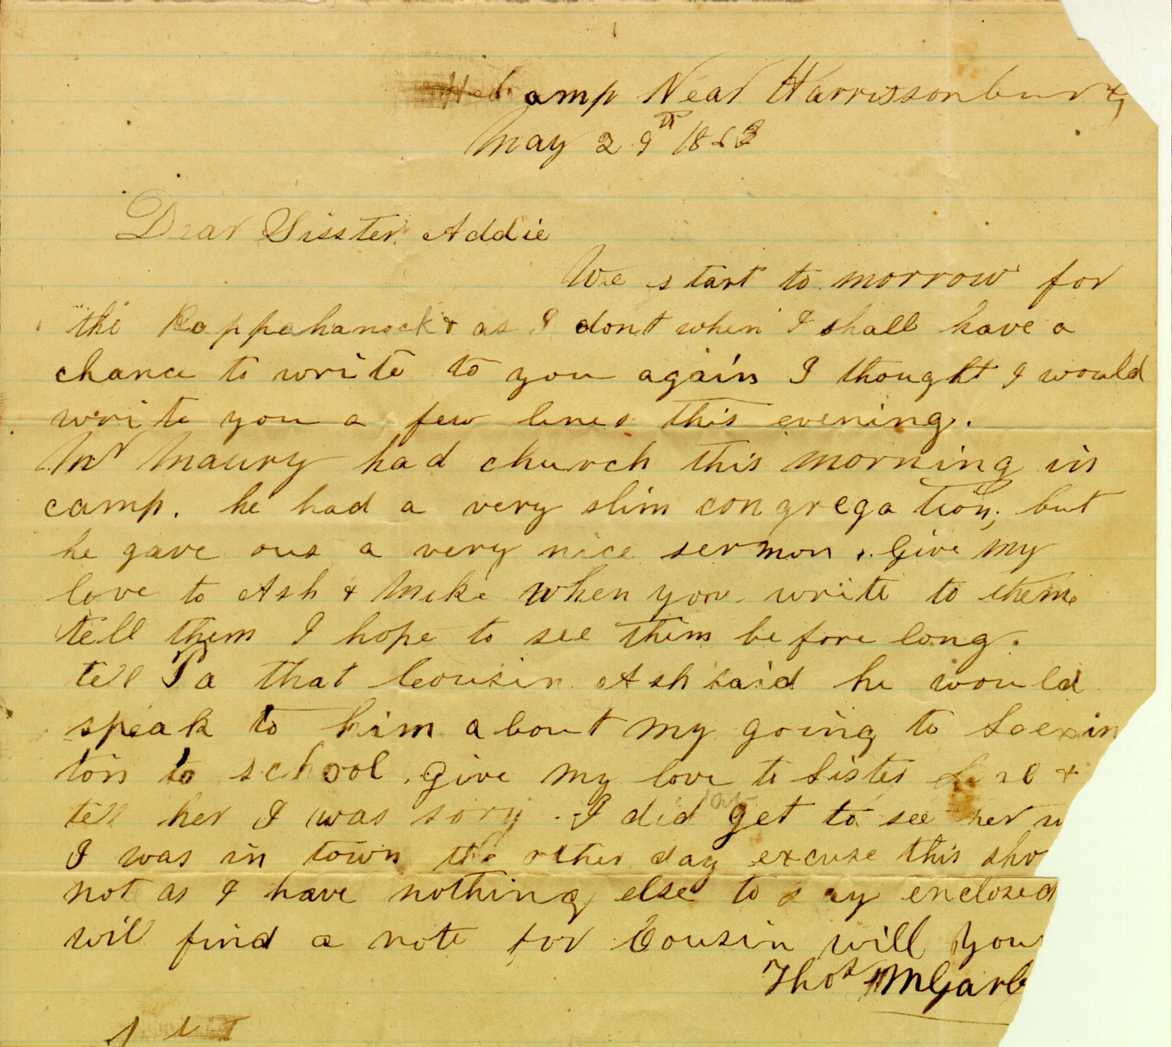 Camp Near Harrissonburg
May 29th 1863
Dear Sisster Addie
We start to morrow for
the Rappahanock & as I dont when I shall have a
chance to write to you again I thought I would
write you a few lines this evening.
Mr Maury had church this morning in
camp. he had a very slim congregation, but
he gave ous a very nice sermon. Give my
love to Ash & Mike when you write to them
tell them I hope to see them before long.
tell Pa that Cousin Ash said he would
speak to him about my going to Lexin
ton to school. give my love to Sister &
tell her I was sory I did not get to see her
I was in town the other day excuse this sho
not as I have nothing else to say enclosed
will find a note for Cousin will You
Thos M Garb